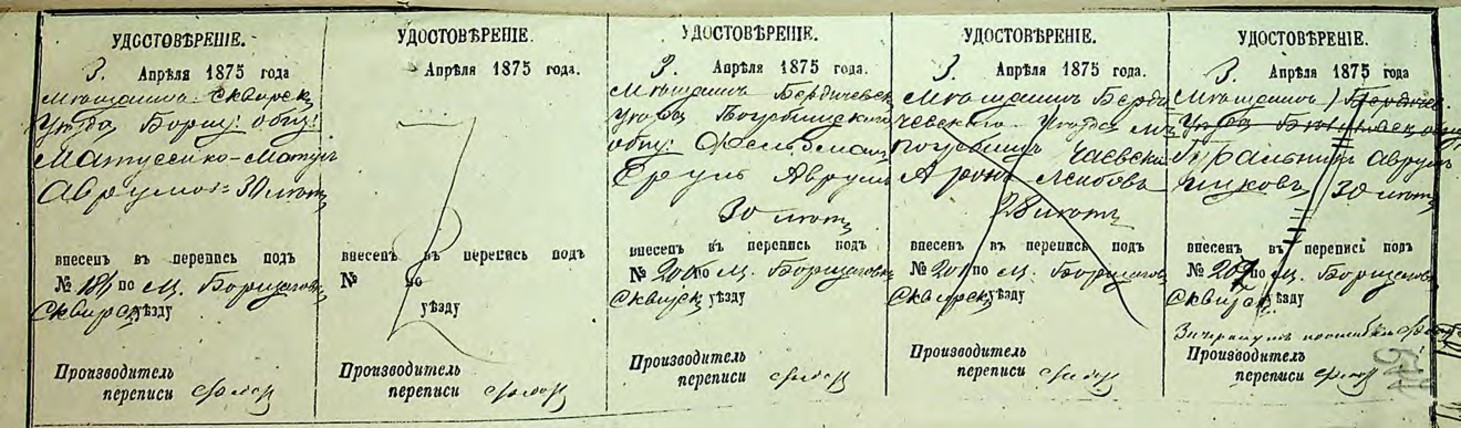 УДОСТОВѢРЕНІЕ.
3. Апрѣля 1875 года
Мѣщанинъ Сквирск
Уѣзда Борщ: общ:
Матусенко-Матус
Аврумов 30 лѣтъ
внесенъ въ перепись подъ
№ по м. Борщаговк
Сквирск уѣзду
Производитель
переписи
УДОСТОВѢРЕНІЕ.
Апрѣля 1875 года.
внесенъ въ перепись подъ
№ по
уѣзду
Производитель
переписи
УДОСТОВѢРЕНІЕ.
3. Апрѣля 1875 года.
Мѣщанинъ Бердичевск
Уѣзда Погребищскаго
общ: Фельдман
Сруль Аврум
30 лѣтъ
внесенъ въ перепись подъ
№ по м. Борщаговк
Сквирск уѣзду
Производитель
переписи
УДОСТОВѢРЕНІЕ.
3. Апрѣля 1875 года.
Мѣщанинъ Берди
чевскаго Уѣзда м.
Погребищ Чаевски
Аронъ Лейбовъ
28 лѣтъ
внесенъ въ перепись подъ
№ по м. Борщагов
Сквирск уѣзду
Производитель
переписи
УДОСТОВѢРЕНІЕ.
3. Апрѣля 1875 года
Мѣщанинъ Бердичев
Уѣзда
Аврум
30 лѣтъ
внесенъ въ перепись подъ
№ 207 по м. Борщагов
Сквирск уѣзду
Производитель
переписи